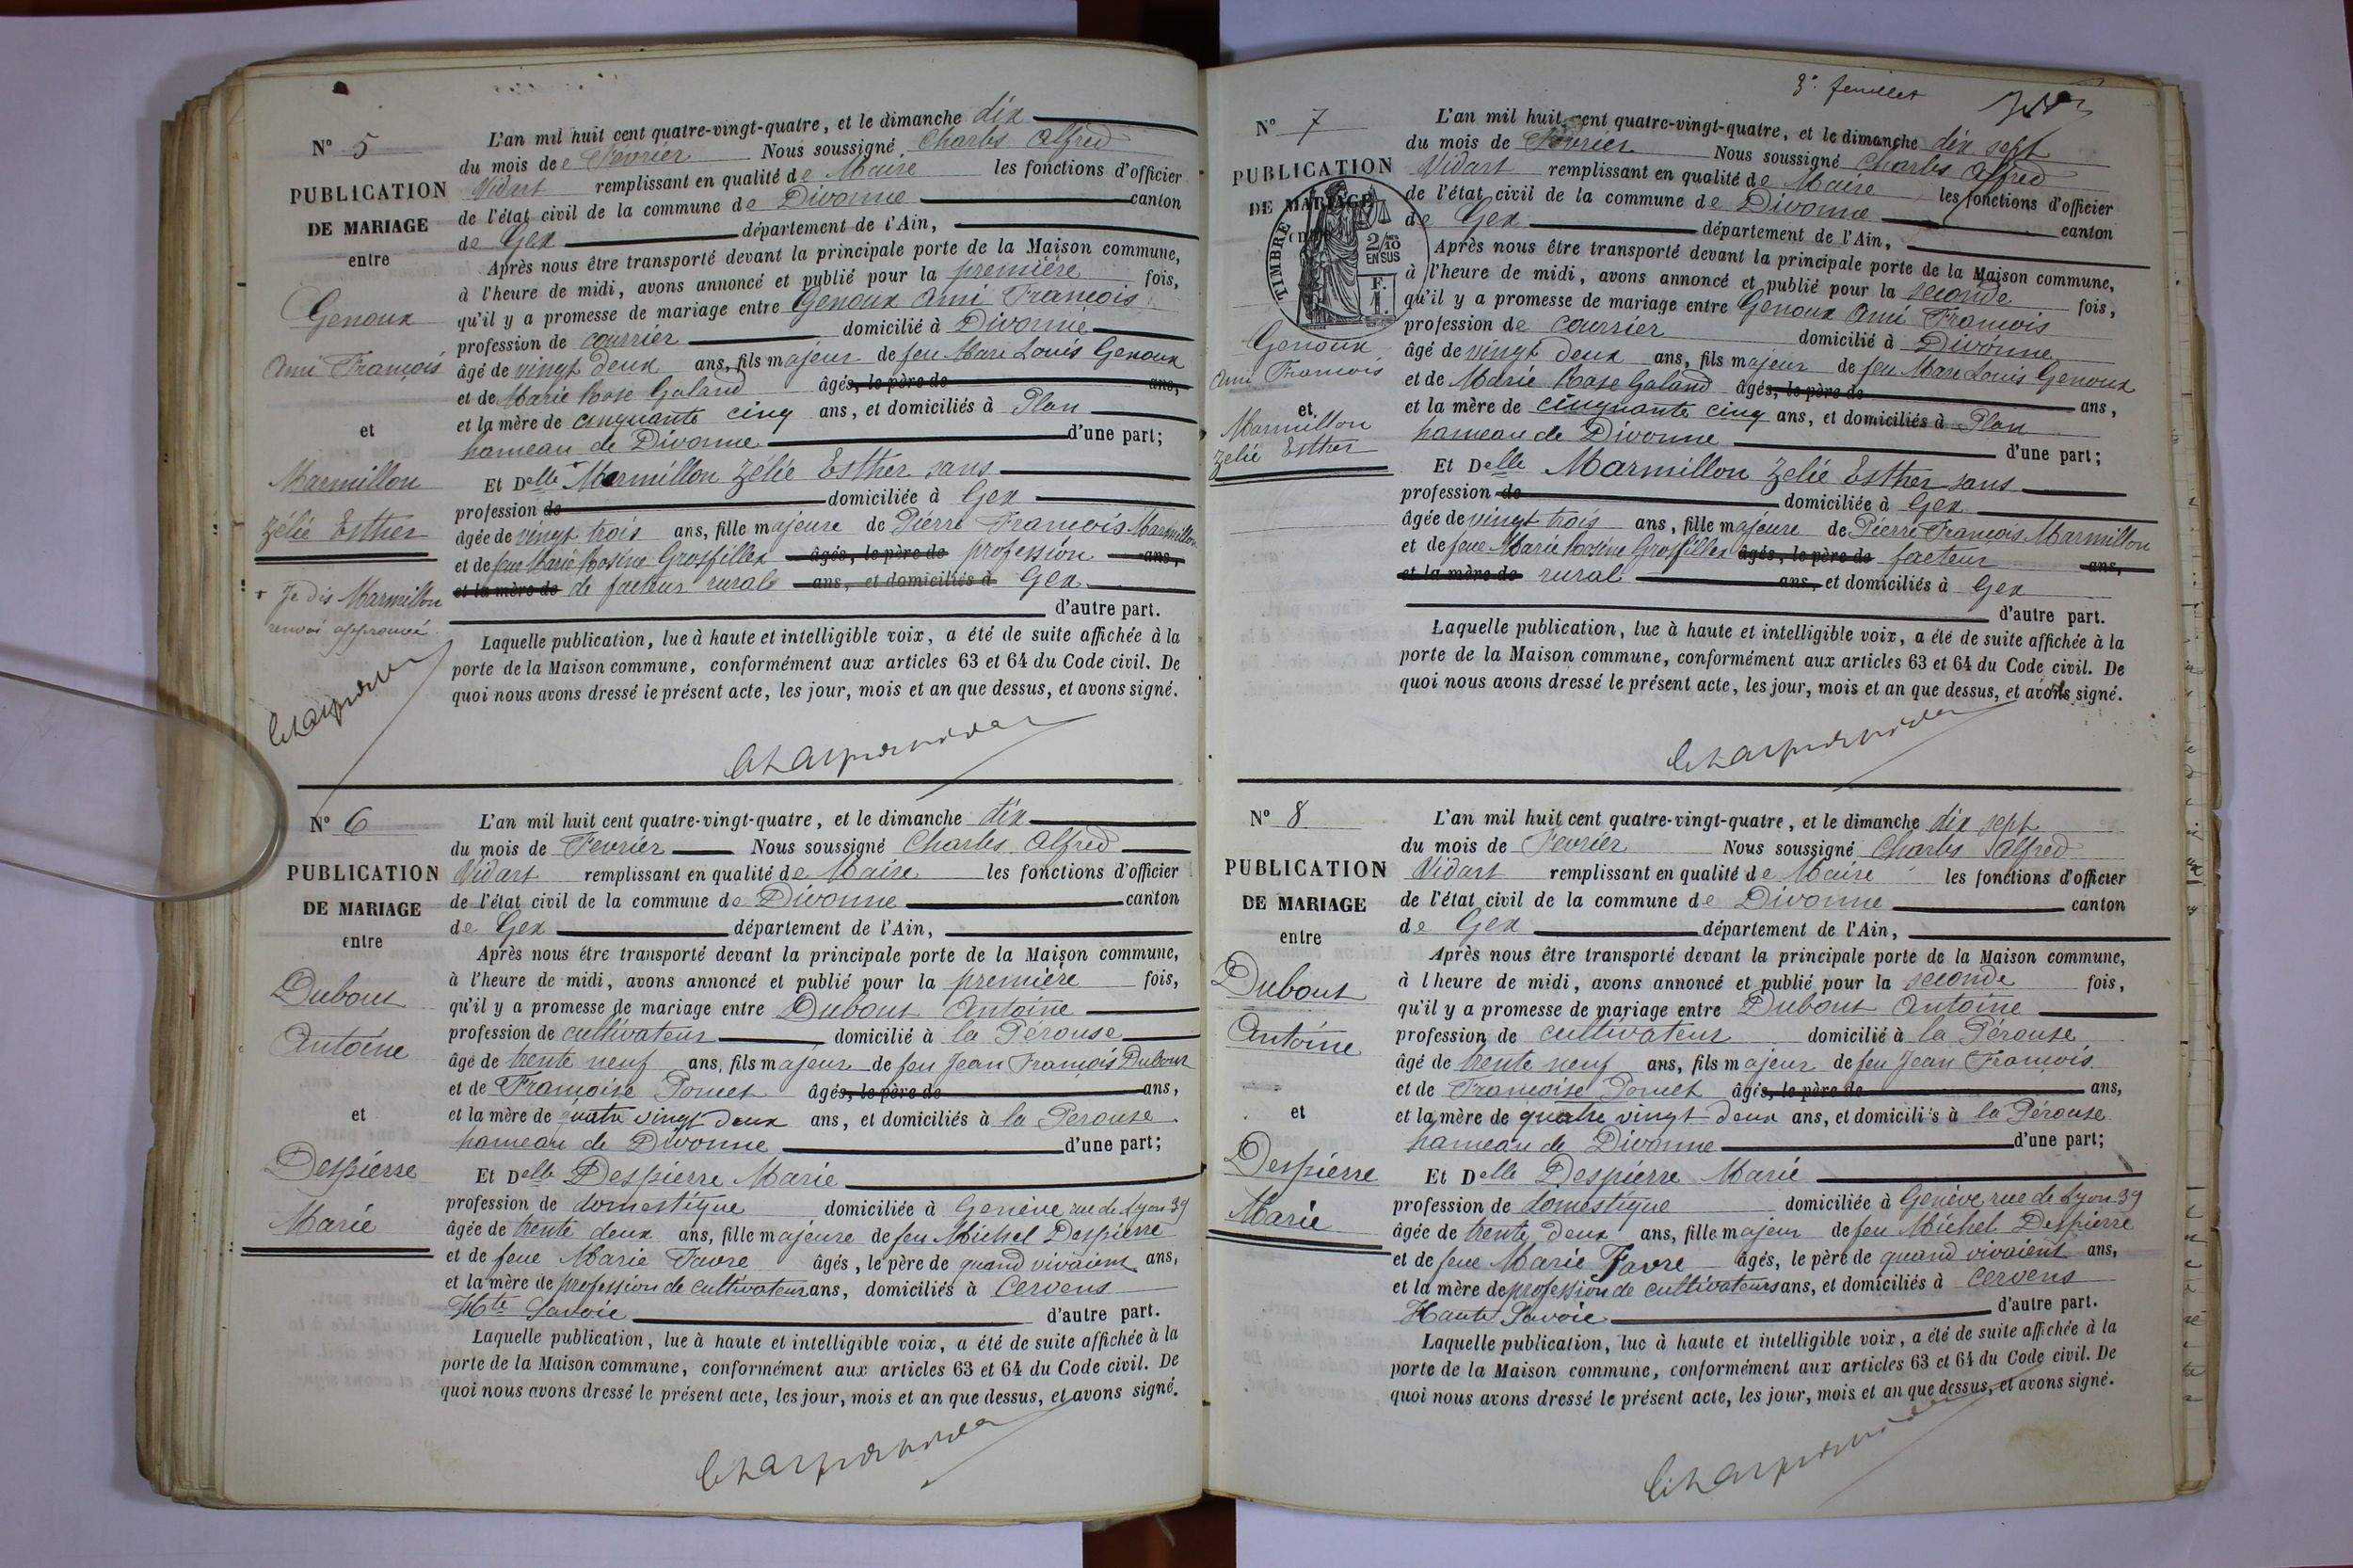 N° 5
PUBLICATION
DE MARIAGE
entre
Genoux
Ami François
et
Marmillon
Zélie Esther
+ Je dis Marmillon
renvoi approuvé
L'an mil huit cent quatre-vingt-quatre, et le dimanche dix
du mois de Février Nous soussigné Charles Alfred
Vidart remplissant en qualité de Maire les fonctions d'officier
de l'état civil de la commune de Divonne canton
de Gex département de l'Ain,
Après nous être transporté devant la principale porte de la Maison commune,
à l'heure de midi, avons annoncé et publié pour la première fois,
qu'il y a promesse de mariage entre Genoux Ami François
profession de courrier domicilié à Divonne
âgé de vingt deux ans, fils majeur de feu Marc Louis Genoux
et de Marie Rose Galand âgés, le père de ans,
et la mère de cinquante cinq ans, et domiciliés à Plan
hameau de Divonne d'une part;
Et Delle + Marmillon Zélie Esther sans
profession de domiciliée à Gex
âgée de vingt trois ans, fille majeure de Pierre François Marmillon
et de feue Marie Rosine Grosfillex âgés, le père de profession ans,
et la mère de de facteur rural ans, et domiciliés à Gex
d'autre part.
Laquelle publication, lue à haute et intelligible voix, a été de suite affichée à la
porte de la Maison commune, conformément aux articles 63 et 64 du Code civil. De
quoi nous avons dressé le présent acte, les jour, mois et an que dessus, et avons signé.
N° 6
PUBLICATION
DE MARIAGE
entre
Dubout
Antoine
et
Despierre
Marie
L'an mil huit cent quatre-vingt-quatre, et le dimanche dix
du mois de Février Nous soussigné Charles Alfred
Vidart remplissant en qualité de Maire les fonctions d'officier
de l'état civil de la commune de Divonne canton
de Gex département de l'Ain,
Après nous être transporté devant la principale porte de la Maison commune,
à l'heure de midi, avons annoncé et publié pour la première fois,
qu'il y a promesse de mariage entre Dubout Antoine
profession de cultivateur domicilié à la Pérouse
âgé de trente neuf ans, fils majeur de feu Jean François Dubout
et de Françoise Poncet âgés, le père de ans,
et la mère de quatre vingt deux ans, et domiciliés à la Perouse
hameau de Divonne d'une part;
Et Delle Despierre Marie
profession de domestique domiciliée à Genève rue de Lyon 39
âgée de trente deux ans, fille majeure de feu Michel Despierre
et de feue Marie Favre âgés, le père de quand vivaient ans,
et la mère de profession de cultivateurs ans, domiciliés à Cervens
Hte Savoie d'autre part.
Laquelle publication, lue à haute et intelligible voix, a été de suite affichée à la
porte de la Maison commune, conformément aux articles 63 et 64 du Code civil. De
quoi nous avons dressé le présent acte, les jour, mois et an que dessus, et avons signé.
3e feuillet
N° 7
PUBLICATION
DE MARIAGE
TIMBRE
2/10
EN SUS
F.
Genoux
Ami François
et
Marmillon
Zélie Esther
L'an mil huit cent quatre-vingt-quatre, et le dimanche dix sept
du mois de Février Nous soussigné Charles Alfred
Vidart remplissant en qualité de Maire les fonctions d'officier
de l'état civil de la commune de Divonne canton
de Gex département de l'Ain,
Après nous être transporté devant la principale porte de la Maison commune,
à l'heure de midi, avons annoncé et publié pour la seconde fois,
qu'il y a promesse de mariage entre Genoux Ami François
profession de courrier domicilié à Divonne
âgé de vingt deux ans, fils majeur de feu Marc Louis Genoux
et de Marie Rose Galand âgés, le père de ans,
et la mère de cinquante cinq ans, et domiciliés à Plan
hameau de Divonne d'une part;
Et Delle Marmillon Zelie Esther sans
profession de domiciliée à Gex
âgée de vingt trois ans, fille majeure de Pierre François Marmillon
et de feue Marie Rosine Grosfillex âgés, le père de facteur ans,
et la mère de rural ans, et domiciliés à Gex
d'autre part.
Laquelle publication, lue à haute et intelligible voix, a été de suite affichée à la
porte de la Maison commune, conformément aux articles 63 et 64 du Code civil. De
quoi nous avons dressé le présent acte, les jour, mois et an que dessus, et avons signé.
N° 8
PUBLICATION
DE MARIAGE
entre
Dubout
Antoine
et
Despierre
Marie
L'an mil huit cent quatre-vingt-quatre, et le dimanche dix sept
du mois de Février Nous soussigné Charles Alfred
Vidart remplissant en qualité de Maire les fonctions d'officier
de l'état civil de la commune de Divonne canton
de Gex département de l'Ain,
Après nous être transporté devant la principale porte de la Maison commune,
à l heure de midi, avons annoncé et publié pour la seconde fois,
qu'il y a promesse de mariage entre Dubout Antoine
profession de cultivateur domicilié à la Pérouse
âgé de trente neuf ans, fils majeur de feu Jean François
et de Françoise Poncet âgés, le père de ans,
et la mère de quatre vingt deux ans, et domiciliés à la Pérouse
hameau de Divonne d'une part;
Et Delle Despierre Marie
profession de domestique domiciliée à Genève rue de Lyon 39
âgée de trente deux ans, fille majeur de feu Michel Despierre
et de feue Marie Favre âgés, le père de quand vivaient ans,
et la mère de profession de cultivateurs ans, et domiciliés à Cervens
Haute Savoie d'autre part.
Laquelle publication, lue à haute et intelligible voix, a été de suite affichée à la
porte de la Maison commune, conformément aux articles 63 et 64 du Code civil. De
quoi nous avons dressé le présent acte, les jour, mois et an que dessus, et avons signé.